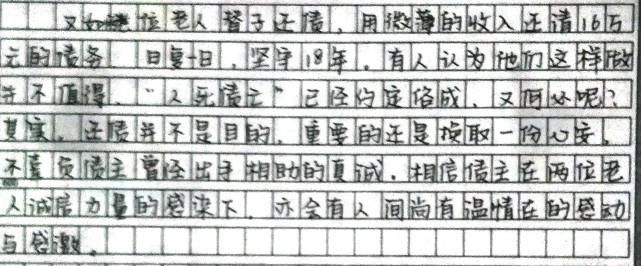 又如两位老人替子还债，用微薄的收入还清16万
元的债务。日复一日，坚守18年。有人认为他们这样做
并不值得，“人死债亡”已经约定俗成，又何必呢？
其实，还债并不是目的，重要的还是换取一份心安，
不辜负债主曾经出手相助的真诚。相信债主在两位老
人诚信力量的感染下，亦会有人间尚有温情在的感动
与感激。